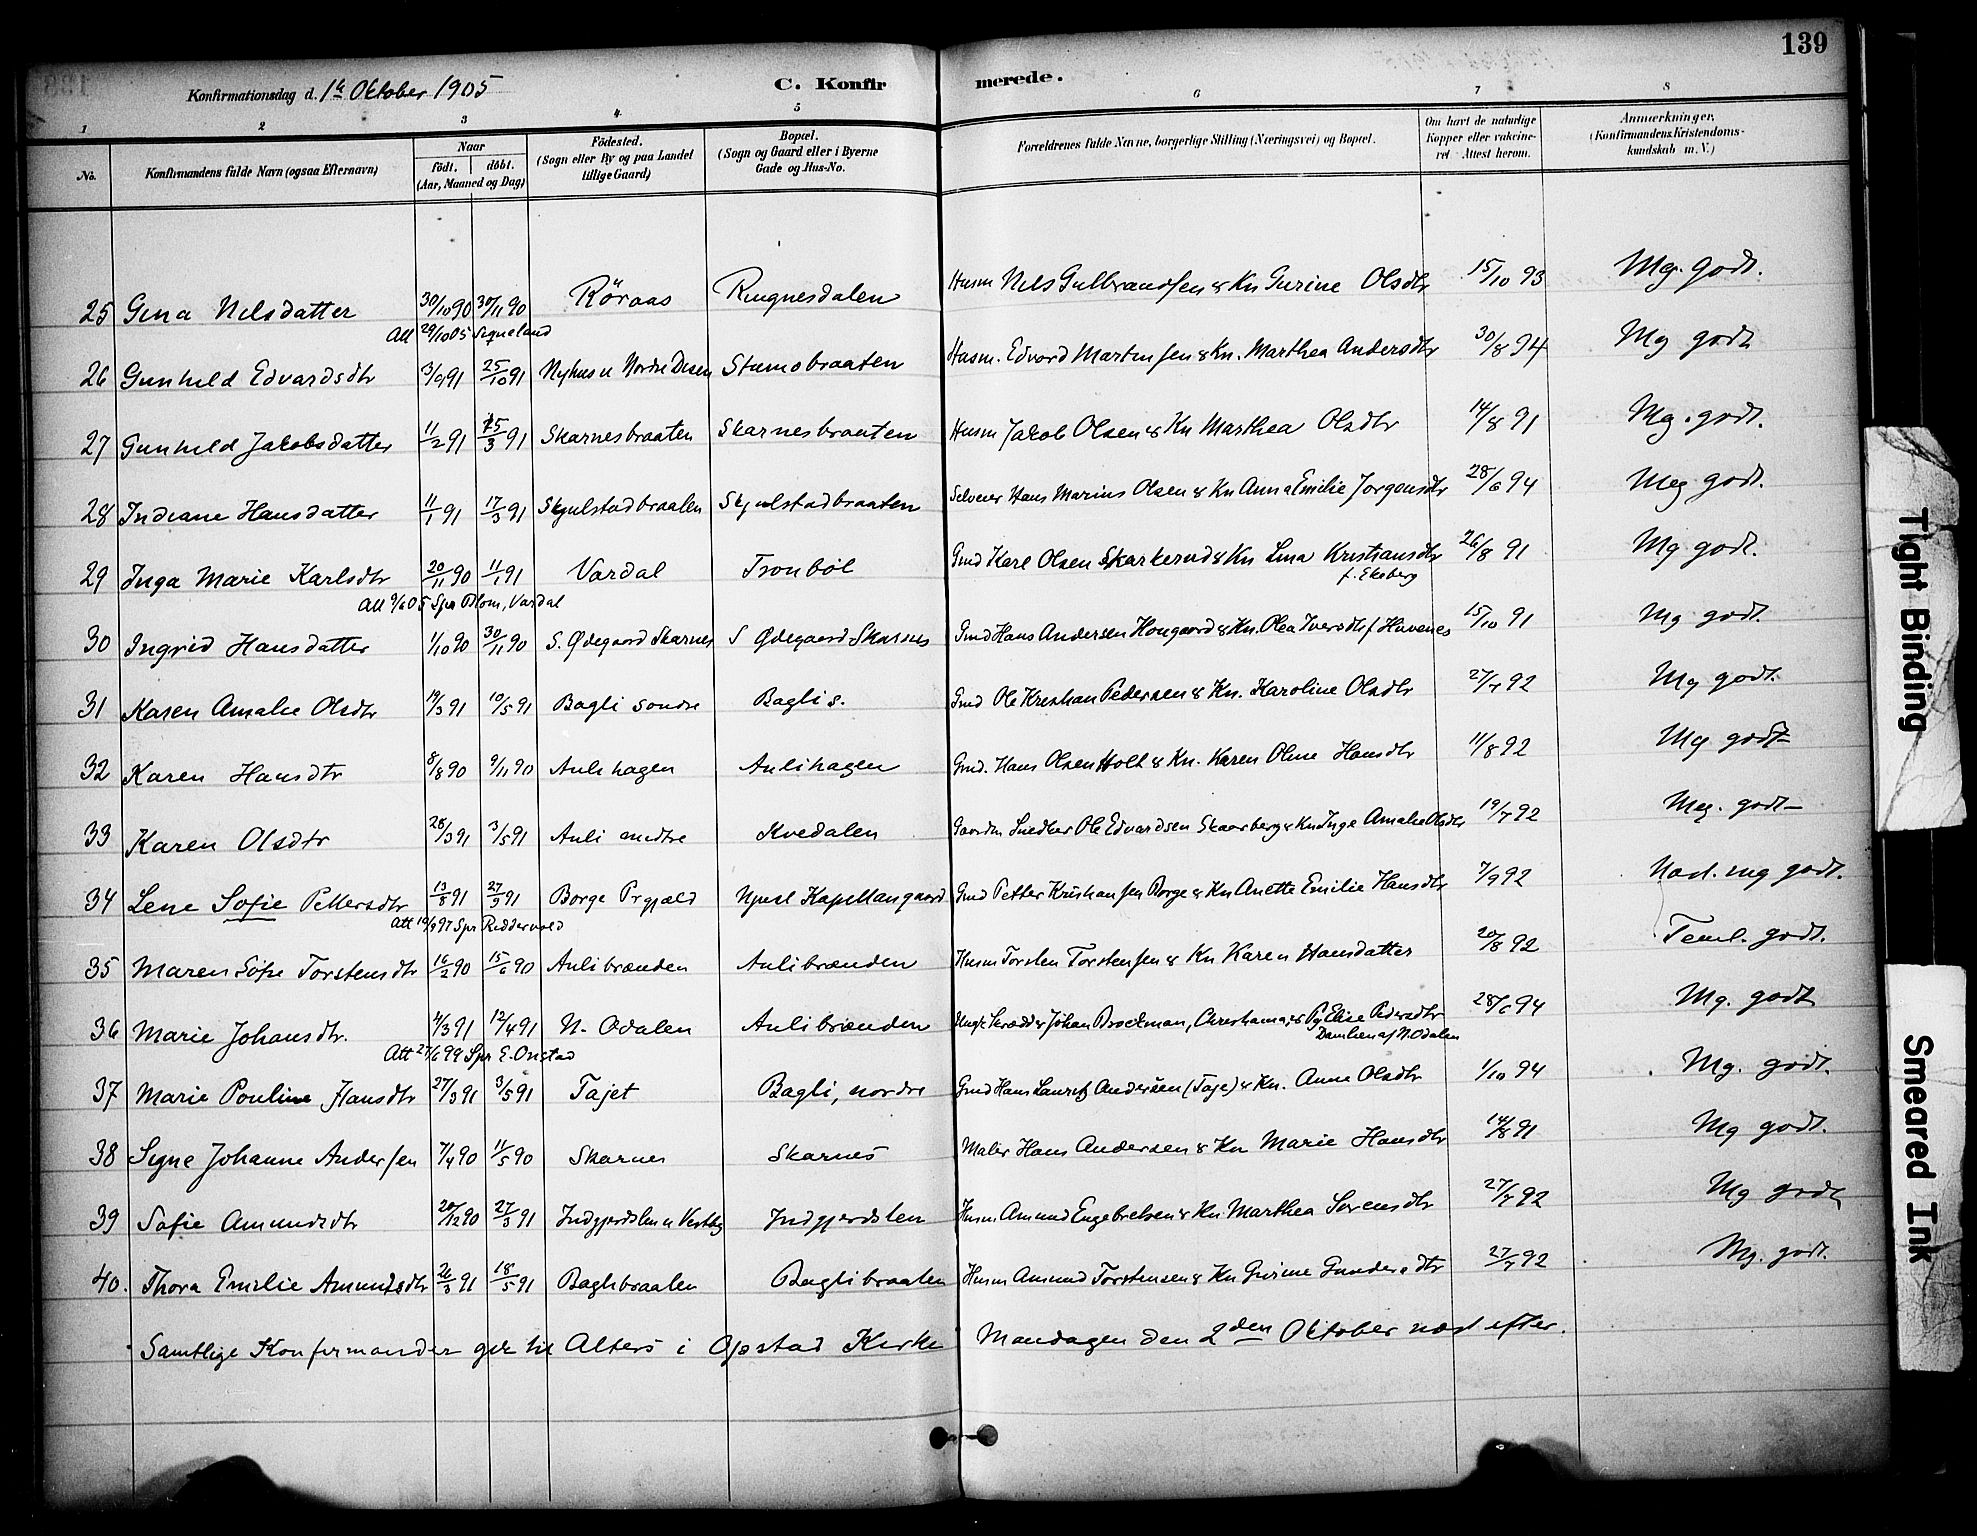 139
Konfirmationsdag d. 1ste Oktober 1905 C. Konfirmerede.
1 2 3 4 5 6 7 8
No. Konfirmandens fulde Navn (ogsaa Efternavn) Naar födt. döbt. (Aar, Maaned og Dag) Födested. (Sogn eller By og paa Landet tillige Gaard) Bopæl. (Sogn og Gaard eller i Byerne Gade og Hus-No. Forældrenes fulde Navne, borgerlige Stilling (Næringsvei) og Bopæl. Om havt de naturlige Kopper eller vakcineret Attest herom. Anmærkninger, (Konfirmandens Kristendomskundskab m. V.)
25 Gina Nilsdatter 30/10 90 30/11 90 Röraas Ringnesdalen Husm Nils Gulbrandsen & Kn Gurine Olsdtr 15/10 93 Mg. godt.
Att 29/10 05
26 Gunhild Edvardsdtr 3/9 91 25/10 91 Nyhus u Nordre Disen Stumobraaten Husm. Edvard Martinsen & Kn. Marthea Andersdtr 30/8 94 Mg godt
27 Gunhild Jakobsdatter 11/2 91 15/3 91 Skarnesbraaten Skarnesbraaten Husm Jakob Olsen & Kn Marthea Olsdtr 14/8 91 Mg. godt.
28 Indiane Hansdatter 11/1 91 17/3 91 Skjulstadbraaten Skjulstadbraaten Selveier Hans Marius Olsen & Kn Anna Emilie Jorgensdtr 28/6 94 Meg godt.
29 Inga Marie Karlsdtr 20/11 90 11/1 91 Vardal Tronböl Gmd Karl Olsen Skarkerud & Kn Lina Kristiansdtr 26/8 91 Mg godt.
f. Ekeberg
Att 9/6 05 Spr Blom, Vardal
30 Ingrid Hansdatter 1/10 90 30/11 90 S. Ødegaard Skarnes S Ødegaard Skarnes Gmd Hans Andersen Hougaard & Kn. Olea Iversdtr f Huvenes 15/10 91 Mg godt.
31 Karen Amalie Olsdtr 19/3 91 10/5 91 Bagli sondre Bagli s. Gmd Ole Kristian Pedersen & Kn. Karoline Olsdtr 27/7 92 Mg godt.
32 Karen Hansdtr 8/8 90 9/11 90 Aulihagen Aulihagen Gmd. Hans Olsen Holt & Kn. Karen Oline Hansdtr 11/8 92 Mg godt
33 Karen Olsdtr 28/3 91 3/5 91 Auli midtre Kvedalen Gaardm Snedker Ole Edvardsen Skaarberg & Kn Inge Amalie Olsdtr 19/7 92 Meg. godt
34 Lene Sofie Pettersdtr 13/8 91 27/9 91 Borge Prgjæld Njusl Kapellangaard Gmd Petter Kristiansen Borge & Kn Anette Emilie Hansdtr 7/9 92 Nad. mg godt.
Att 19/9 97 Spr Reddervold
35 Maren Sofie Torstensdtr 16/2 90 15/6 90 Aulibrænden Aulibrænden Husm Torsten Torstensen & Kn Karen Hansdatter 20/8 92 Teml. godt.
36 Marie Johansdtr. 4/3 91 12/4 91 N. Odalen Aulibrænden Ungk Skrædder Johan Brockman, Christiania, & Pg Elise Pedersdtr 28/6 94 Mg. godt
af N. Odalen
Att 27/6 99 Spr E. Onstad
37 Marie Pouline Hansdtr 27/3 91 3/5 91 Tajet Bagli, nordre Gmd Hans Lauritz Andersen (Taje) & Kn. Anne Olsdtr 1/10 94 Mg. godt.
38 Signe Johanne Andersen 7/4 90 11/5 90 Skarnes Skarnes Maler Hans Andersen & Kn Marie Hansdtr 14/8 91 Mg godt.
39 Sofie Amundsdtr 20/12 90 27/3 91 Indgjerdslen u Vestby Indgjerdslen Husm Amund Engebretsen & Kn Marthea Sorensdtr 27/7 92 Mg godt
40. Thora Emilie Amundsdtr 26/3 91 18/5 91 Baglibraaten Baglibraaten Husm Amund Torstensen & Kn Gurine Gundersdtr 27/7 92 Mg. godt.
Samtlige Konfirmander gik til Alters i Opstad Kirke Mandagen den 2den Oktober næst efter.
Tight Binding
Smeared Ink